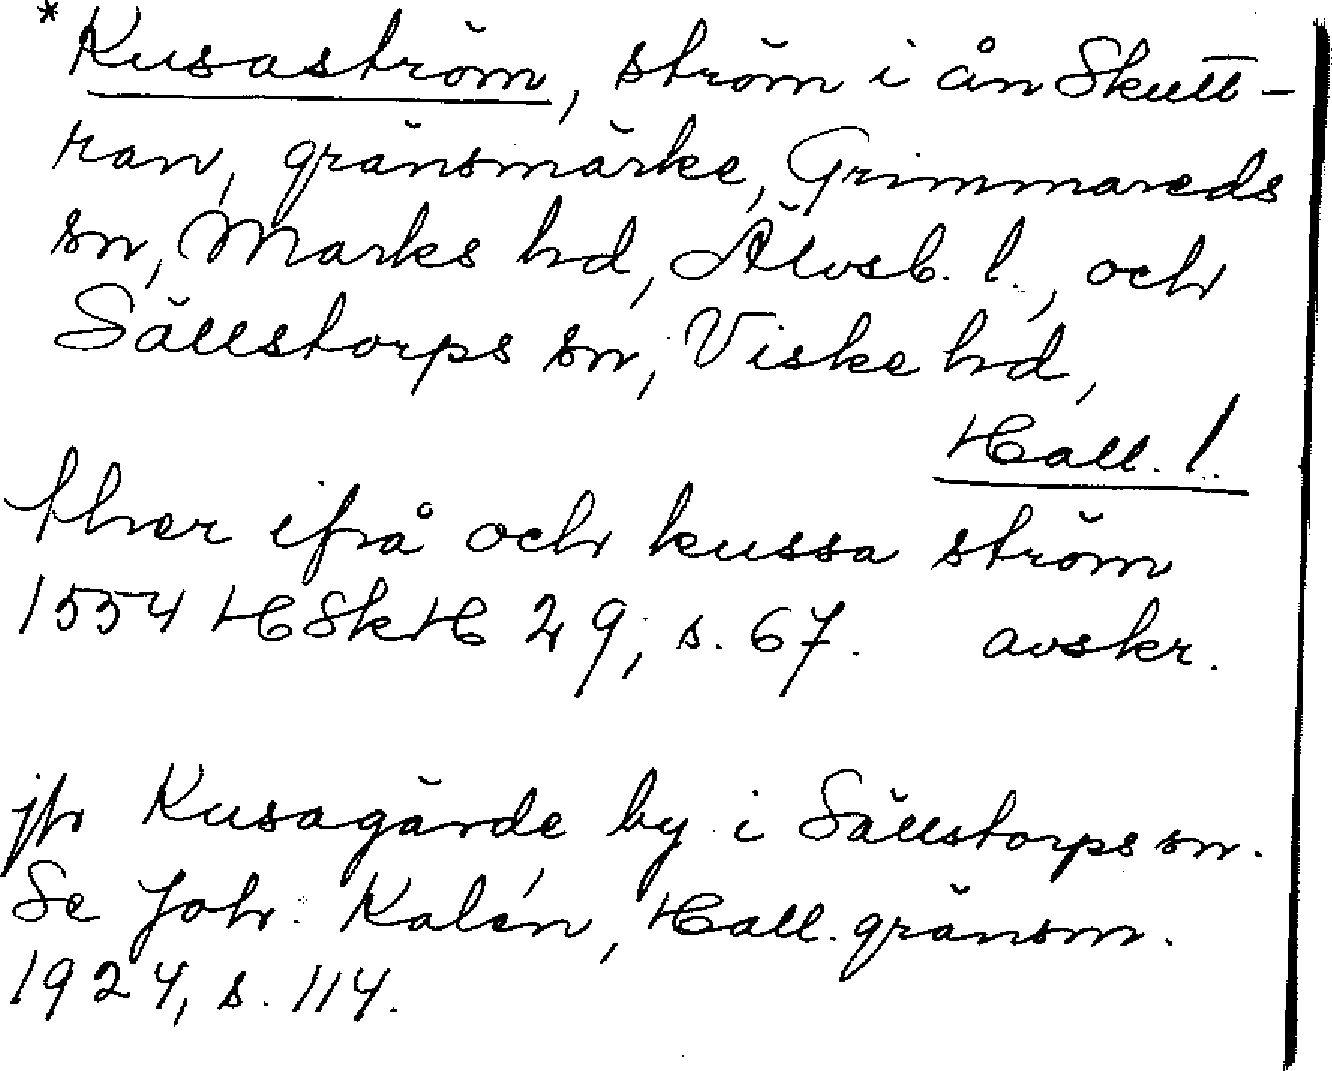 *Kusaström, ström i ån Skutt-
ran, gränsmärke, Grimmareds
sn, Marks hd, Älvsb. l., och
Sällstorps sn, Viske hd,
Hall. l.
ther ifrå och kussa ström
1554 HSkH 29, s. 67. avskr.
jfr Kusagärde, by i Sällstorps sn.
Se Joh. Kalén, Hall. gränsm.
1924, s. 114.